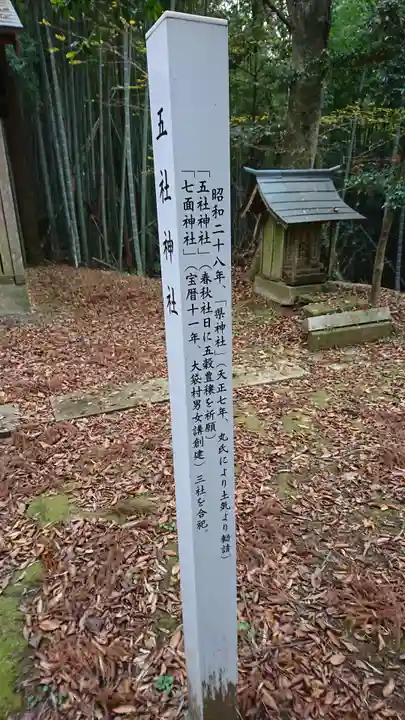 五社神社
昭和二十八年、「県神社」(天正七年、丸氏により土気より勧請)
「五社神社」(春秋社日に五穀豊穣を祈願)
「七面神社」(宝暦十一年、大袋村男女講創建) 三社を合祀。